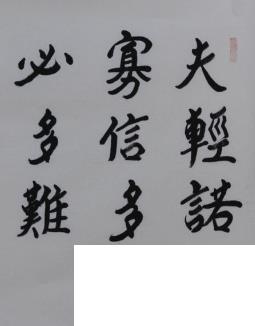 夫輕諾
寡信多
必多難